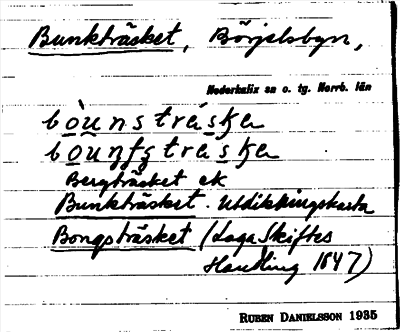 Bunkträsket, Börjelsbyn,
Nederkalix sn o. tg. Norrb. län
bòunstráska
Bergträsket ek
Bunkträsket. Utdikningskarta
Bongsträsket (Laga Skiftes
Handling 1847)
RUBEN DANIELSSON 1935